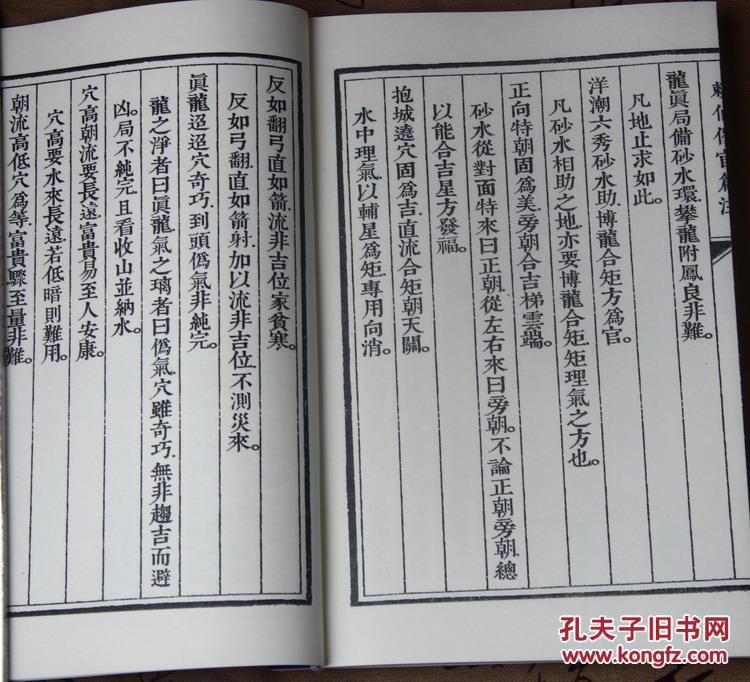 龍眞局備砂水環．攀龍附鳳良非難。
凡地止求如此。
洋潮六秀砂水助．博龍合矩方爲官。
凡砂水相助之地．亦要博龍合矩．矩理氣之方也。
正向特朝固爲美．旁朝合吉梯雲端。
砂水從對面特來曰正朝．從左右來曰旁朝。不論正朝旁朝．總
以能合吉星方發福。
抱城遶穴固爲吉．直流合矩朝天關。
水中理氣．以輔星爲矩．專用向消。
反如翻弓直如箭．流非吉位家貧寒。
反如弓翻．直如箭射．加以流非吉位．不測災來。
眞龍迢迢穴奇巧．到頭僞氣非純完。
龍之淨者曰眞龍．氣之璃者曰僞氣．穴雖奇巧．無非趨吉而避
凶。局不純完．且看收山並納水。
穴高朝流要長遠．富貴易至人安康。
穴高要水來長遠．若低暗則難用。
朝流高低穴爲等．富貴驟至量非難。
孔夫子旧书网
www.kongfz.com